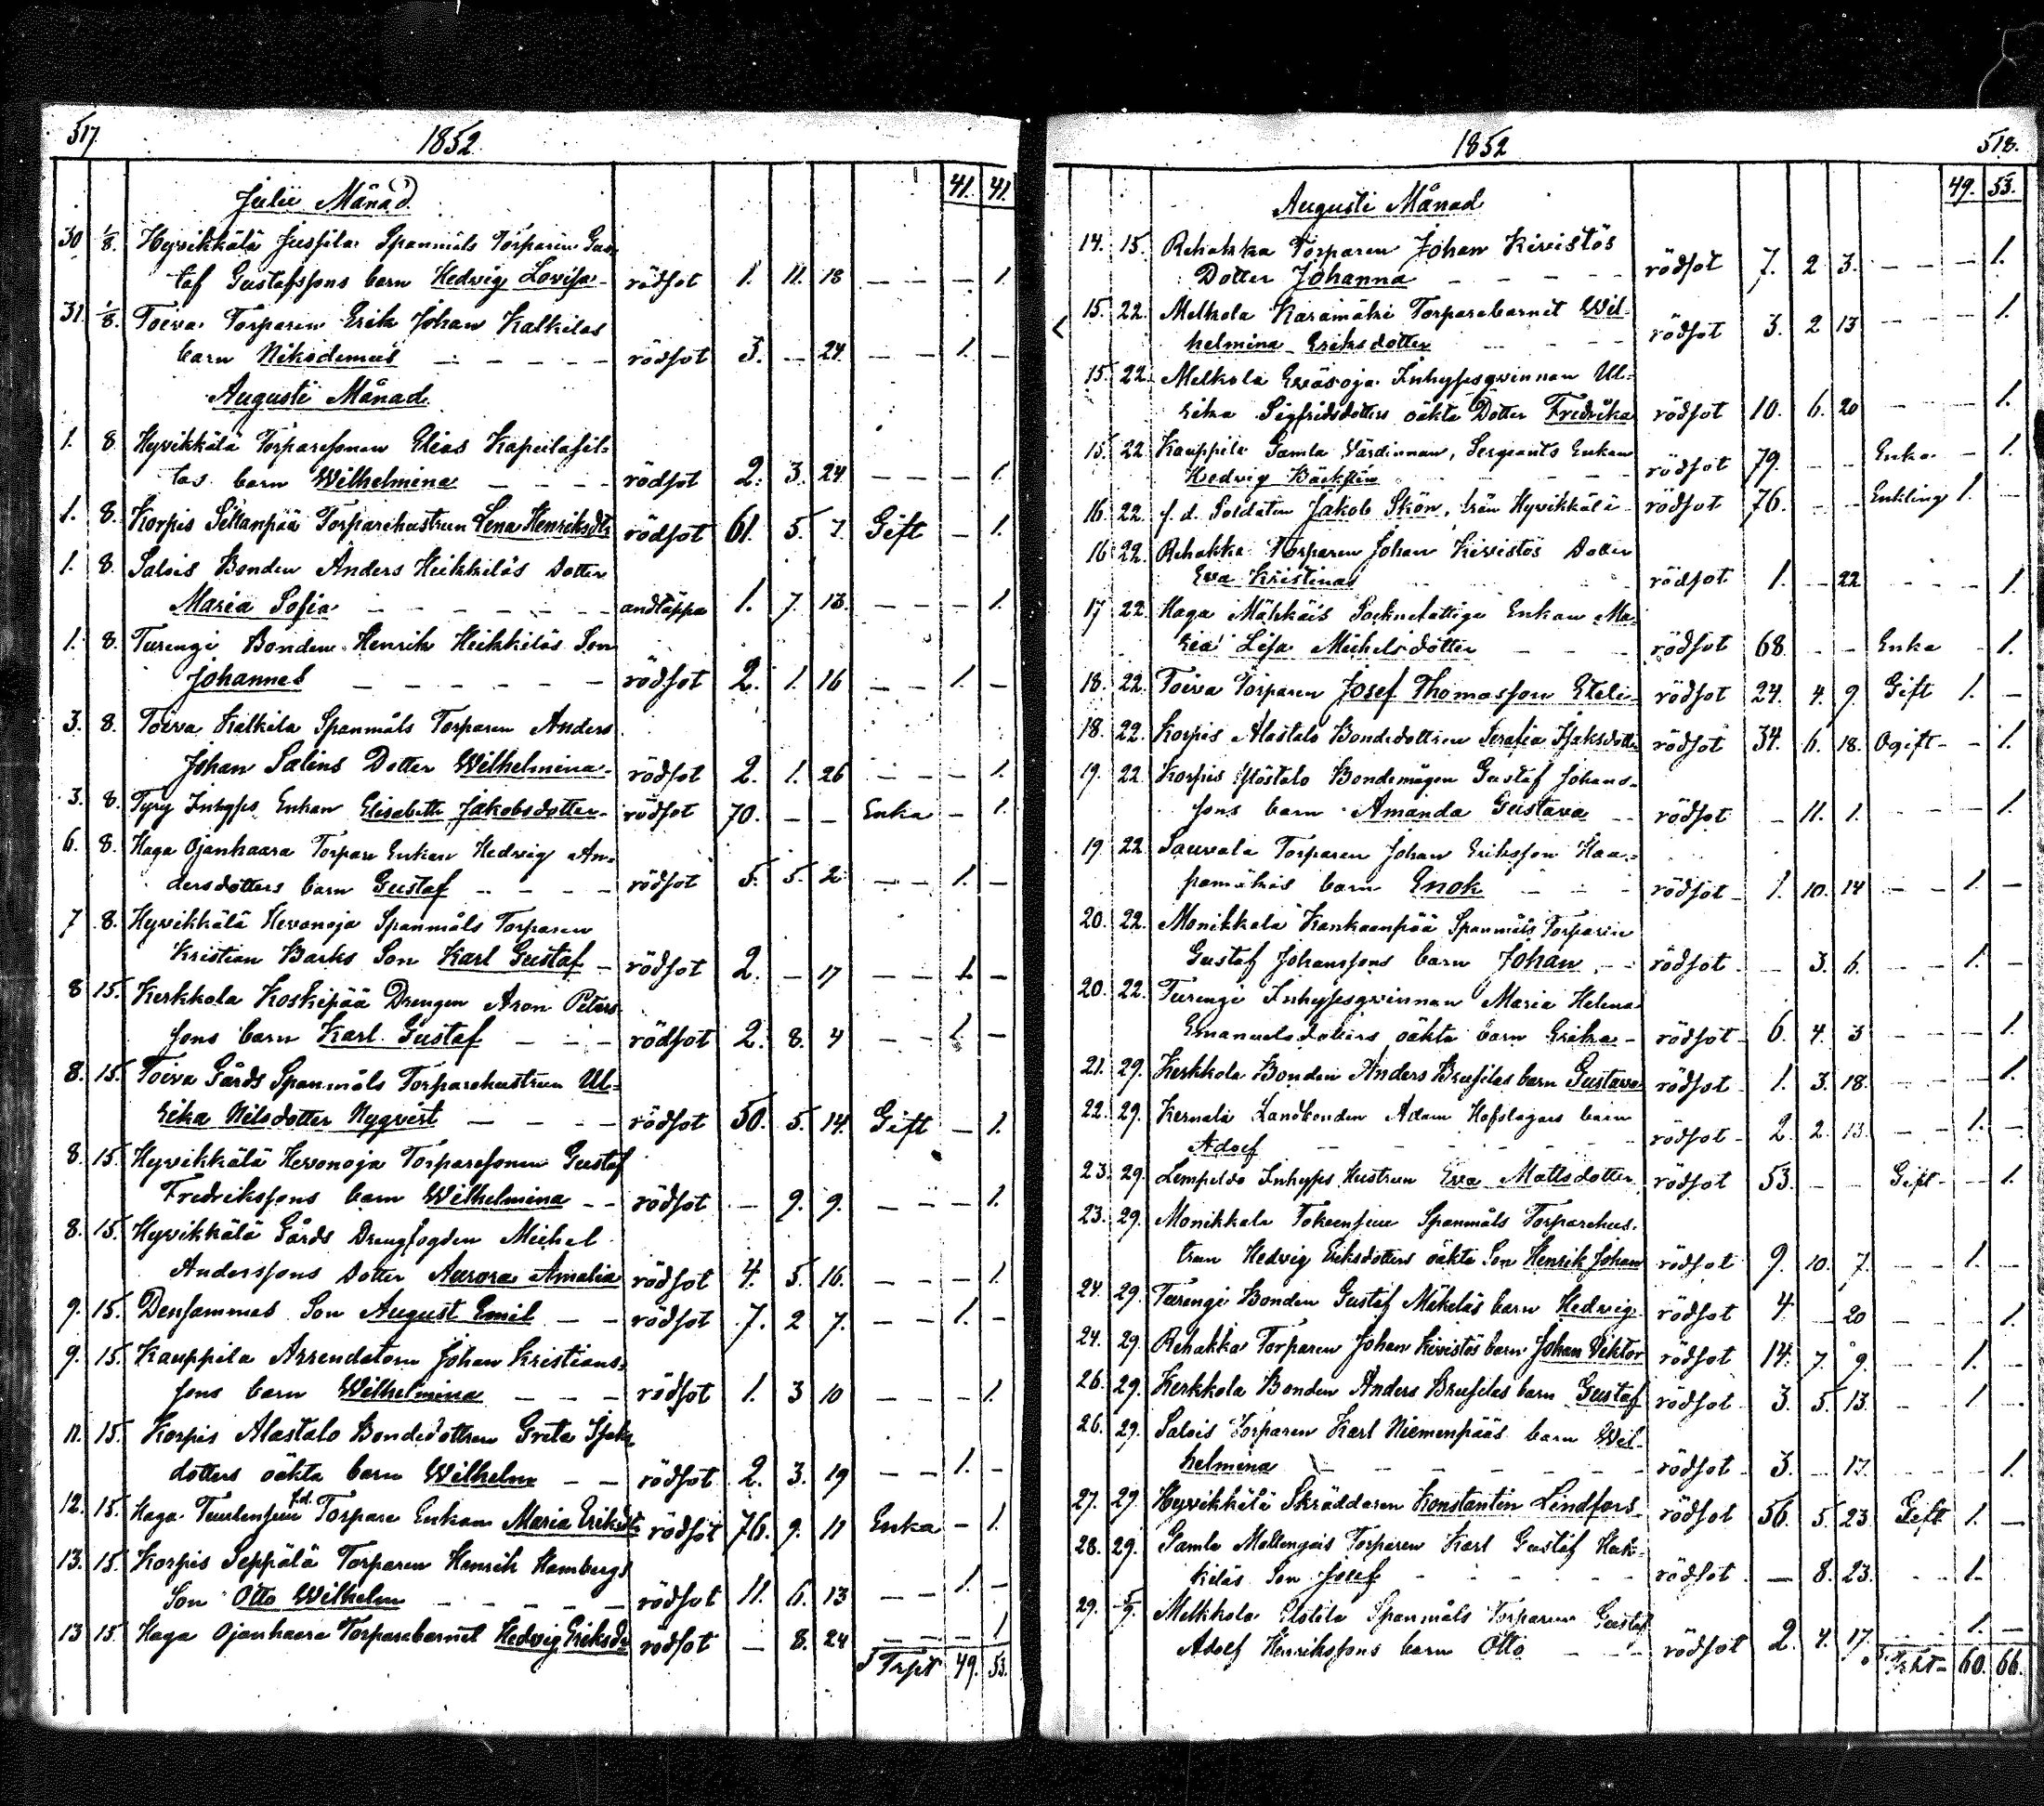 517
1852
41. 41.
Julii Månad
30 1/8. Hyvikkälä Jussila Spanmåls Torparen Gus-
taf Gustafssons barn Hedvig Lovisa - rödsot 1. 11. 18 — — — 1.
31. 1/8. Toiva Torparen Erik Johan Kalkilas
barn Nikodemus - - - - rödsot 3. — 24. — — 1. —
Augusti Månad
1. 8. Hyvikkälä Torparesonen Elias
tas barn Wilhelmina - - - rödsot 2. 3. 24 — — — 1.
1. 8. Korpis Sillanpää Torparehustrun Lena Henriksdtr rödsot 61. 5. 7. Gift — 1.
1. 8. Salois Bonden Anders Heikkiläs Dotter
Maria Sofia - - - - - - andtäppa 1. 7. 13. — — — 1.
1. 8. Turengi Bonden Henrik Heikkiläs Son
Johannes - - - - - - rödsot 2. 1. 16 — — 1. —
3. 8. Toiva Kalkila Spanmåls Torparen Anders
Johan Salins Dotter Wilhelmina - rödsot 2. 1. 26 — — — 1.
3. 8. Tyry Inhyses Enkan Elisabeth Jakobsdotter - rödsot 70. — — Enka — 1.
6. 8. Haga Ojanhaara Torpare Enkan Hedvig An-
dersdotters barn Gustaf - - - - rödsot 5. 5. 2 — — 1. —
7 8. Hyvikkälä Hevonoja Spanmåls Torparen
Kristian Barks Son Karl Gustaf - rödsot 2. — 17 — — 1. —
8 15. Kerkkola Koskipää Drengen Aron Peters
sons barn Karl Gustaf - - - rödsot 2. 8. 4 — — 1. —
8. 15. Toiva Gårds Spanmåls Torparehustrun Ul-
rika Nilsdotter Nyqvist - - - - rödsot 50. 5. 14. Gift — 1.
8. 15. Hyvikkälä Hevonoja Torparesonen Gustaf
Fredrikssons barn Wilhelmina - - rödsot — 9. 9. — — — 1.
8. 15. Hyvikkälä Gårds Drengfogden Michel
Anderssons Dotter Aurora Amalia rödsot 4. 5. 16. — — — 1.
9. 15. Densammes Son August Emil - - rödsot 7. 2 7. — — 1. —
9. 15. Kauppila Arrendatorn Johan Kristians-
sons barn Wilhelmina - - - rödsot 1. 3 10 — — — 1.
11. 15. Korpis Alastalo Bondedottren Greta Isaks
dotters oäkta barn Wilhelm - - rödsot 2. 3. 19 — — 1. —
12. 15. Haga Tuulensuu f.d. Torpare Enkan Maria Eriksdtr rödsot 76. 9. 11 Enka — 1.
13. 15. Korpis Seppälä Torparen Henrik Hambergs
Son Otto Wilhelm - - - - rödsot 11. 6. 13 — — 1. —
13 15. Haga Ojanhaara Torparebarnet Hedvig Eriksdr rödsot — 8. 24 — — — 1
Trpt 49. 53.
1852
518.
49. 53.
Augusti Månad
14. 15. Rehakka Torparen Johan Kivistös
Dotter Johanna - - - - rödsot 7. 2 3. — — — 1.
15. 22. Melkola Karamäki Torparebarnet Wil-
helmina Eriksdotter - - - - rödsot 3. 2 13 — — — 1.
15. 22. Melkola Inhysesqvinnan Ul-
rika Sigfridsdotters oäkta Dotter Fredrika rödsot 10. 6. 20 — — 1.
15. 22 Kauppila Gamla Värdinnan, Sergeants Enkan
Hedvig Bäckstén rödsot 79. — — Enka — 1.
16. 22. f. d. Soldaten Jakob Skön, från Hyvikkälä - rödsot 76. — — Enkling 1. —
16 22. Rehakka Torparen Johan Kivistös Dotter
Eva Kristina rödsot 1. — 22 — — — 1.
17 22. Haga Mähkäis Socknefattiga Enkan Ma-
ria Lisa Michelsdotter - - - rödsot 68. — — Enka — 1.
18. 22. Toiva Torparen Josef Thomasson Eteli- rödsot 24. 4. 9. Gift 1. —
18. 22. Korpis Alastalo Bondedottren Serafia Isaksdotter rödsot 34. 6. 18. Ogift — — 1.
19. 22. Korpis Ylöstalo Bondemågen Gustaf Johans-
sons barn Amanda Gustava - - rödsot — 11. 1. — — — 1.
19 22. Sauvala Torparen Johan Eriksson Haa-
pamäkis barn Enok - - - rödsot - 1. 10. 14 — — 1. —
20. 22. Monikkala Kankaanpää Spanmåls Torparen
Gustaf Johanssons barn Johan - - rödsot — 3. 6. — — 1. —
20. 22. Turengi Inhysesqvinnan Maria Helena
Emanuelsdotters oäkta barn Erika - rödsot - 6. 4. 3 — — — 1.
21. 29. Kerkkola Bonden Anders Brusilas barn Gustava rödsot - 1. 3. 18. — — — 1.
22. 29. Kernala Landbonden Adam Hofslagars barn
Adolf - - - - - rödsot - 2. 2. 13. — — 1. —
23. 29. Inhyses Hustrun Eva Mattsdotter rödsot 53. — — Gift — — 1.
23. 29. Monikkala Spanmåls Torparehus-
trun Hedvig Eriksdotters oäkta Son Henrik Johan rödsot 9. 10. 7. — — 1. —
24. 29. Turengi Bonden Gustaf Mikeläs barn Hedvig rödsot 4. — 20 — — — 1.
24. 29. Rehakka Torparen Johan Kivistös barn Johan Viktor rödsot 14. 7. 9. — — 1. —
26. 29. Kerkkola Bonden Anders Brusilas barn Gustaf rödsot 3. 5. 13. — — 1 —
26. 29. Salois Torparen Karl Niemenpääs barn Wil-
helmina - - - - - rödsot - 3. — 17. — — — 1.
27. 29. Hyvikkälä Skräddaren Konstantin Lindfors - rödsot 56. 5. 23 Gift 1. —
28. 29. Gamla Mallengais Torparen Karl Gustaf Hak-
kiläs Son Josef - - - - rödsot — 8. 23. — — 1. —
29. 5/9. Melkkola Spanmåls Torparen Gustaf
Adolf Henrikssons barn Otto - - - rödsot 2. 4. 17. — — 1. —
Trpt - 60. 66.